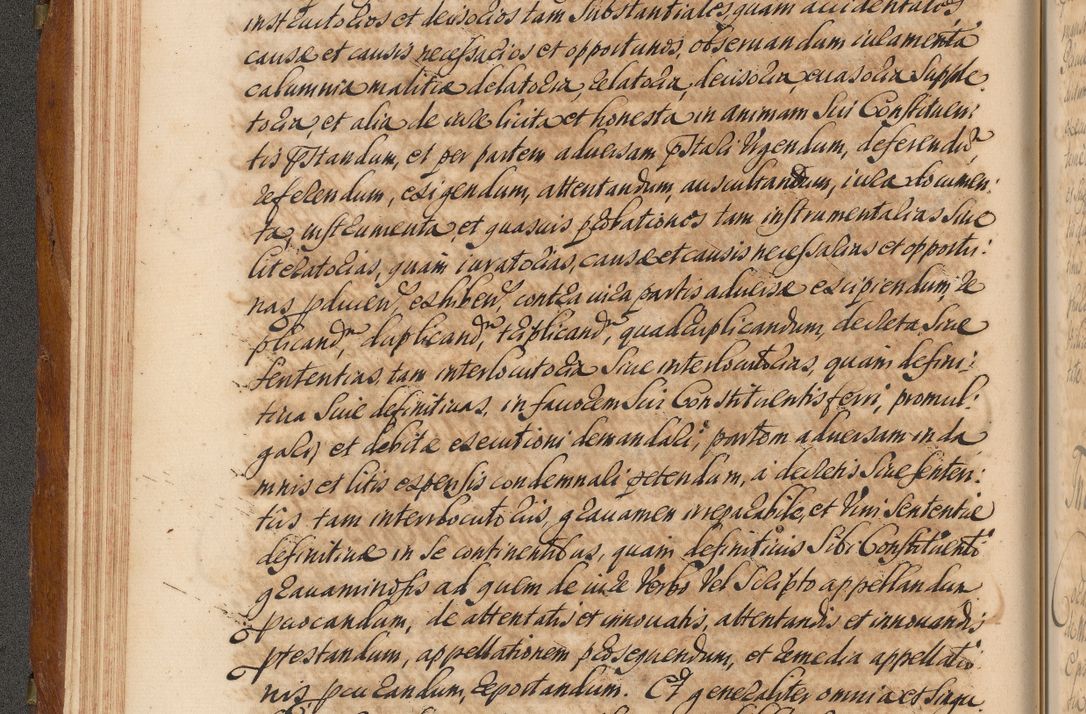 institutorios et decisorios tam substantiales, quam accidentales
causæ et causis necessarios et opportunos, observandum iuramenta
calumniæ malitiæ delatoria, relatoria, decisoria, euasoria Supple
toria, et alia de iure licita et honesta in animam Sui Constituen:
tis pstandum, et per partem aduersam pstari Vrgendum, deferendū
referendum, exigendum, attentandum, auscultandum, iura documen:
ta, instrumenta, et quasuis probationes tam instrumentalias Siue
literatorias, quam iuratorias, causæ et causis necessarias et opportu:
nas pducen exhiben contra iura partis aduersæ excipiendum, re
plicand, duplicand, triplicand, quadruplicandum, decreta Siue
Sententias, tam interlocutoria Siue interlocutorias, quam defini:
tiua Siue definitiuas, in fauorem Sui Constituentis ferri, promul:
gari, et debitæ executioni demandari, partem aduersam in da
mnis et litis expensis condemnari petendum, a decretis Siue Senten:
tiis tam interlocutoriis, grauamen irreparabile, et Vim Sententiæ
definitiuæ in se continentibus, quam definitiuis Sibi Constituenti
grauaminosis ad quem de iure Verbo Vel Scripto appellandum
puocandum, de attentatis et innouatis, attentandis et innouandis
ptestandum, appellationem prosequendum, et remedia appellatio
nis pcurandum, reportandum. Et generaliter omnia et Singu